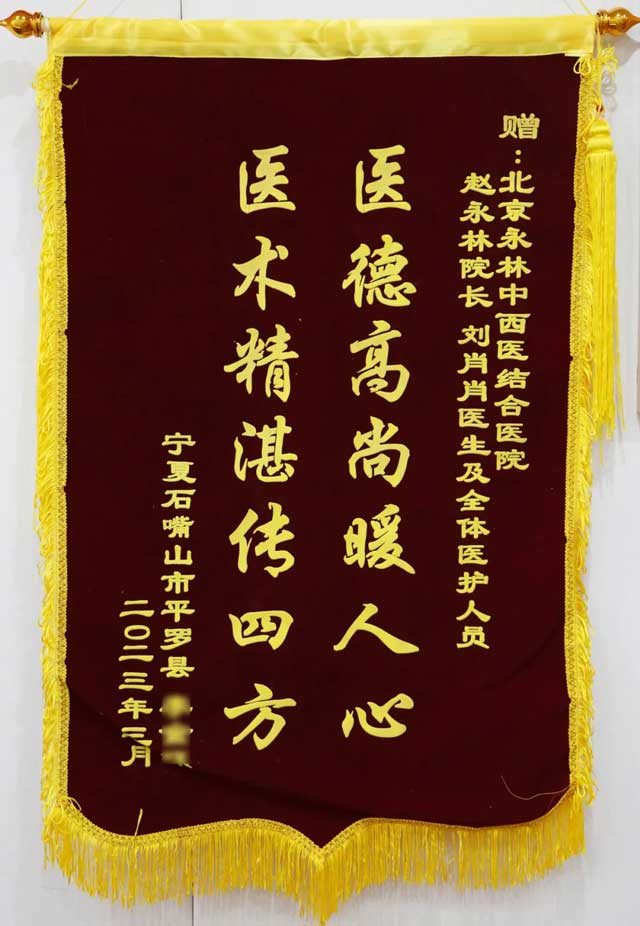 赠：北京永林中西医结合医院
赵永林院长 刘肖肖医生及全体医护人员
医德高尚暖人心
医术精湛传四方
宁夏石嘴山市平罗县
二〇二三年三月